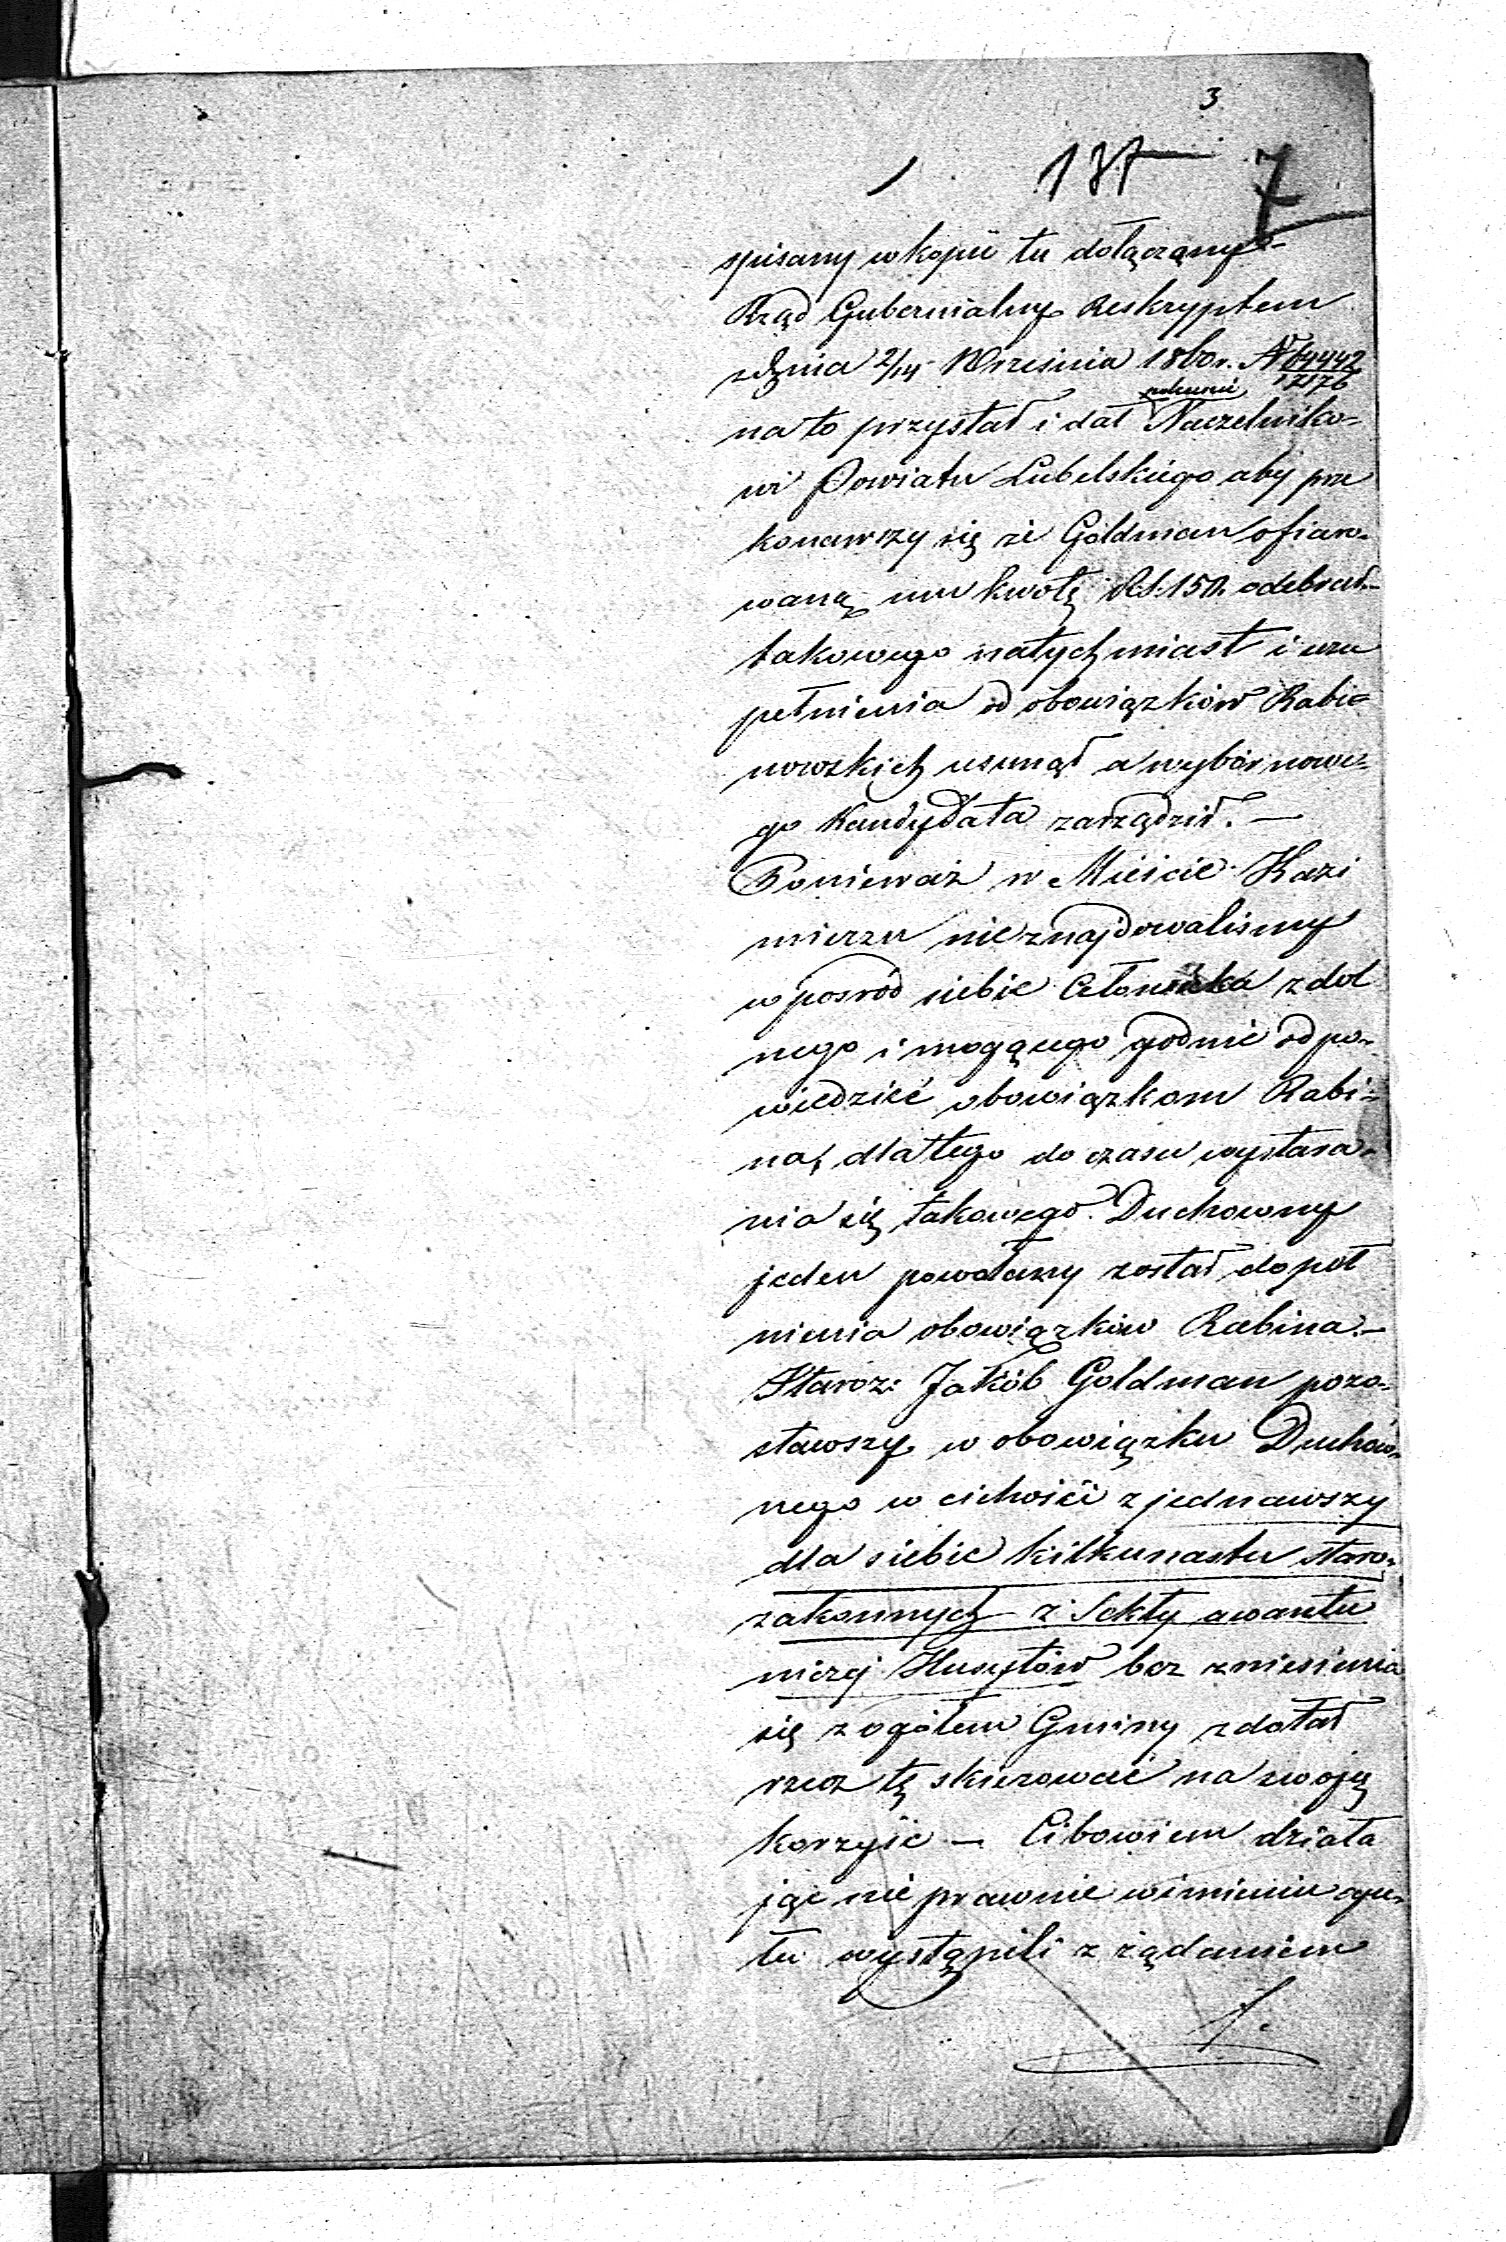 3
137 7
spisany w kopii tu dołączany
Rząd Gubernialny Reskryptem
z dnia 2/14 Września 1860 r. N 64442/12176
polecenie
na to przystał i dał Naczelniko-
wi Powiatu Lubelskiego aby prze
konawszy się że Goldman ofiaro-
waną mu kwotę Rs. 150. odebrał-
takowego natychmiast i
pełnienia od obowiązków Rabi-
nowskich usunął a wybór nowe-
go Kandydata zarządził. —
Ponieważ w Mieście Kazi
mierzu nieznajdowalismy
w posród siebie Członika zdol
nego i mogącego godnie odpo-
wiedzieć obowiązkom Rabi-
na, dla tego do czasu wystara-
nia się takowego Duchowny
jeden powołany został do peł
nienia obowiązków Rabina.—
Staroz: Jakób Goldman pozo-
stawszy w obowiązku Duchow-
nego w cichości zjednawszy
dla siebie kilkunastu staro-
zakonnych z Sekty awantu
niczej Husytów bez zniesienia
się z ogółem Gminy zdołał
rzecz tę skierować na swoję
korzyść — Ci bowiem działa
jąc nie prawnie w imieniu ogu-
łu wystąpili z żądaniem